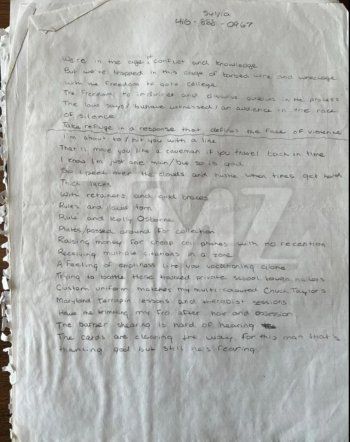 Sylvia
416-888-0967
We're in the age, conflict and knowledge
But we're trapped in this cage of barbed wire and wreckage
with the freedom to go to college
The freedom to and in the process
The law says / but have witnessed / an audience in the face
of silence
Take refuge in a response that defies the face of violence
I'm about to / hit you with a line
That'll move you like a caveman if you travel back in time
I know I'm just one man / but so is god
So I peer over the clouds and hustle when times get hard
Thick
With retainers and gold braces
Rules and torn
Rule and Kelly Osborne
Plates passed around for collection
Raising money for cheap cell phones with no reception
Receiving multiple citations in a zone
A feeling of emptiness like you vacationing alone
Trying to battle these haggard private school
Custom uniform matches my multi-coloured Chuck Taylor's
Maryland Terrapin lessons and therapist sessions
Have me trimming my fro after hair and obsession
The barber shearing is hard of hearing
The cards are clearing the way for this man that's
thanking god but still he's fearing
TMZ